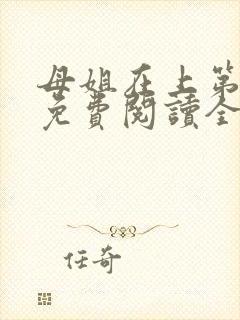 母姐在上第
免费閱讀全
任奇